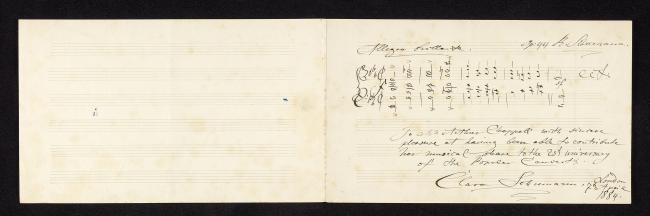 Allegro brillante. Op. 44 R. Schumann.
etc
To Mr Arthur Chappell with sincere
pleasure at having been able to contribute
her musical share to the 25th anniversary
of the Popular Concerts.
Clara Schumann. London
7th April
1884.